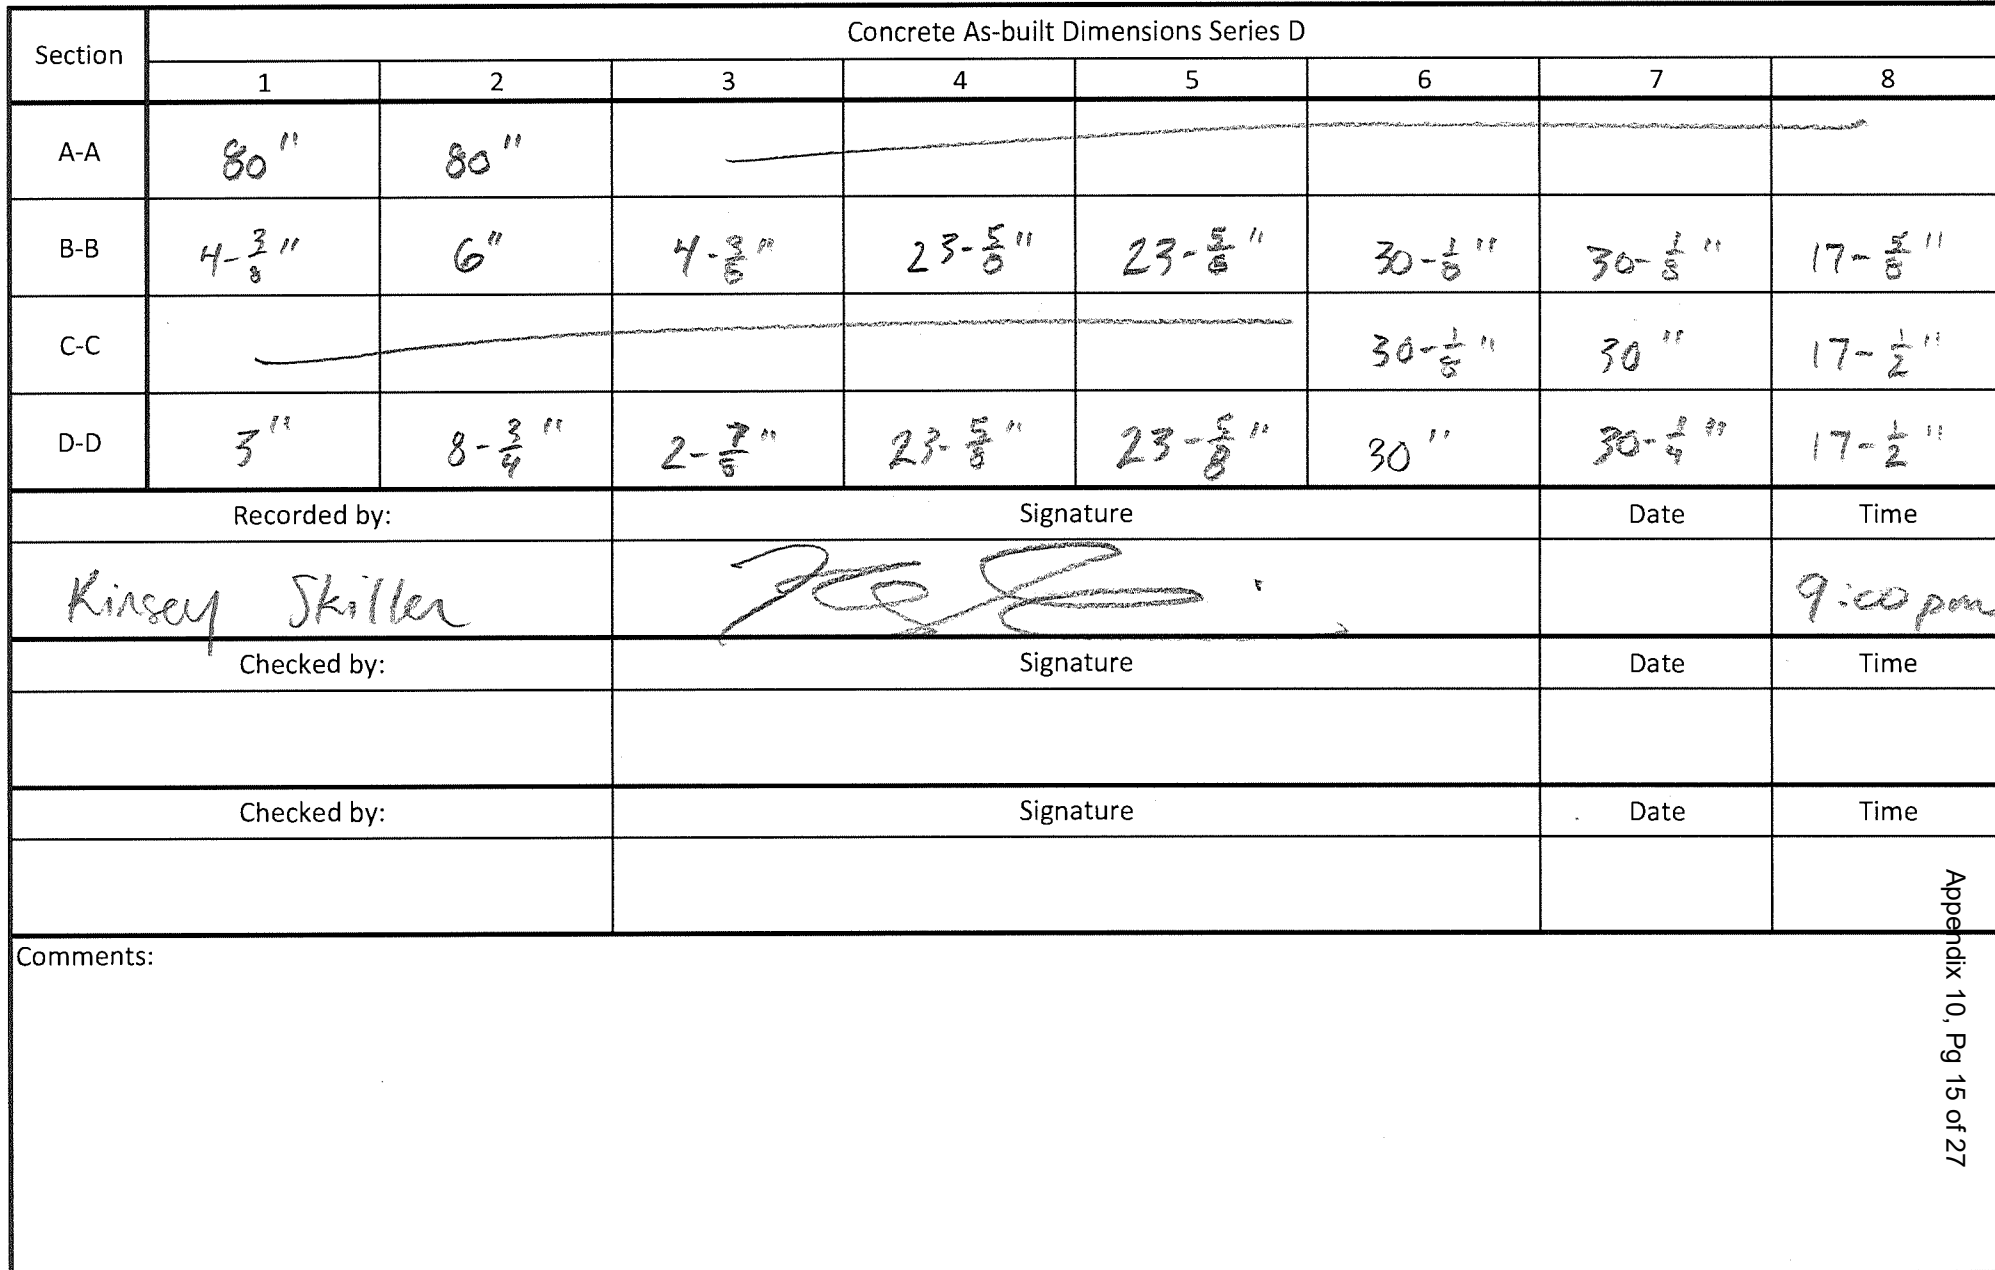 Concrete As-built Dimensions Series D
Section
1 2 3 4 5 6 7 8
A-A 80" 80"
B-B 4-3/8" 6" 4-3/8" 23-5/8" 23-5/8" 30-1/8" 30-1/8" 17-5/8"
C-C 30-1/8" 30" 17-1/2"
D-D 3" 8-3/4" 2-7/8" 23-5/8" 23-5/8" 30" 30-1/4" 17-1/2"
Recorded by: Signature Date Time
Kinsey Skiller 9:00 pm
Checked by: Signature Date Time
Checked by: Signature Date Time
Comments:
Appendix 10, Pg 15 of 27